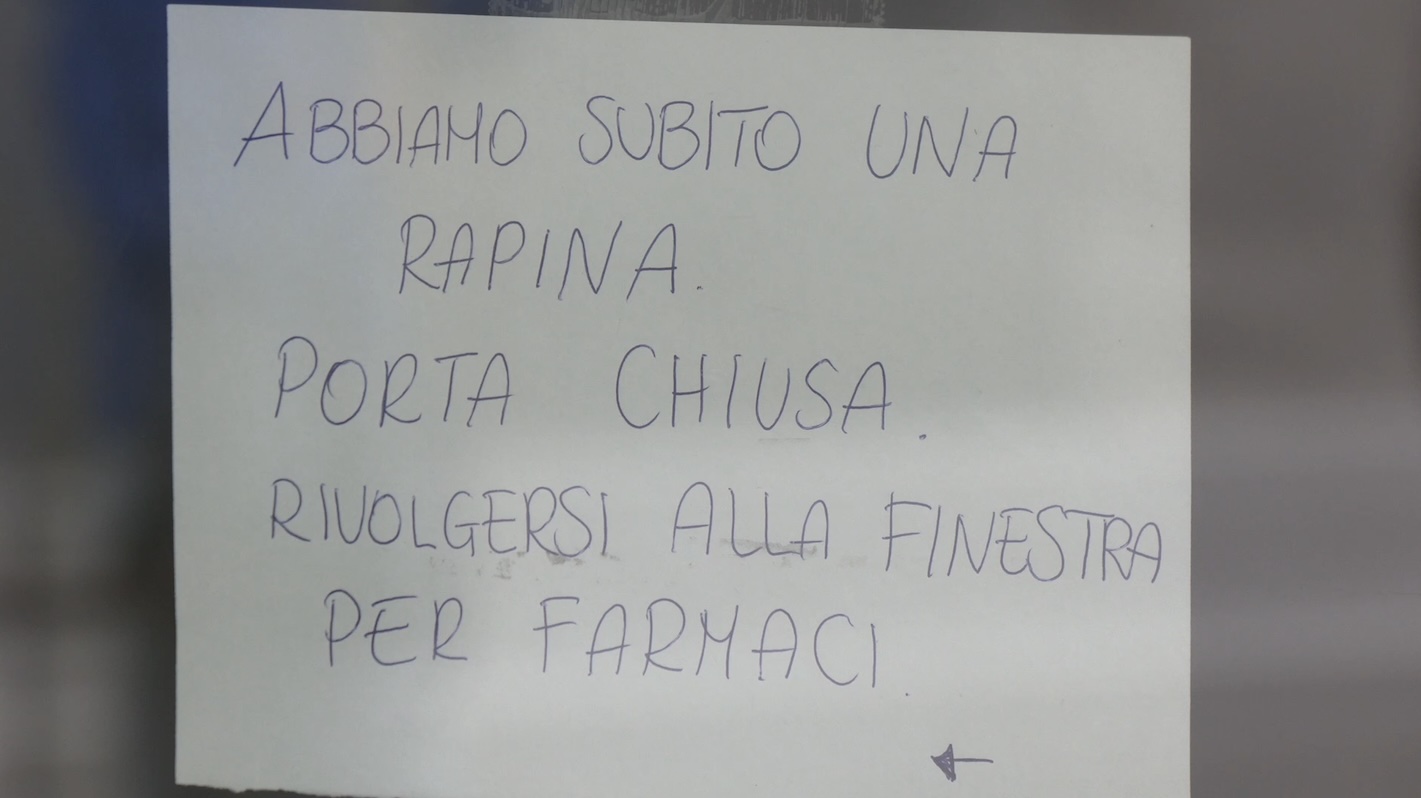 ABBIAMO SUBITO UNA
RAPINA.
PORTA CHIUSA.
RIVOLGERSI ALLA FINESTRA
PER FARMACI.
←